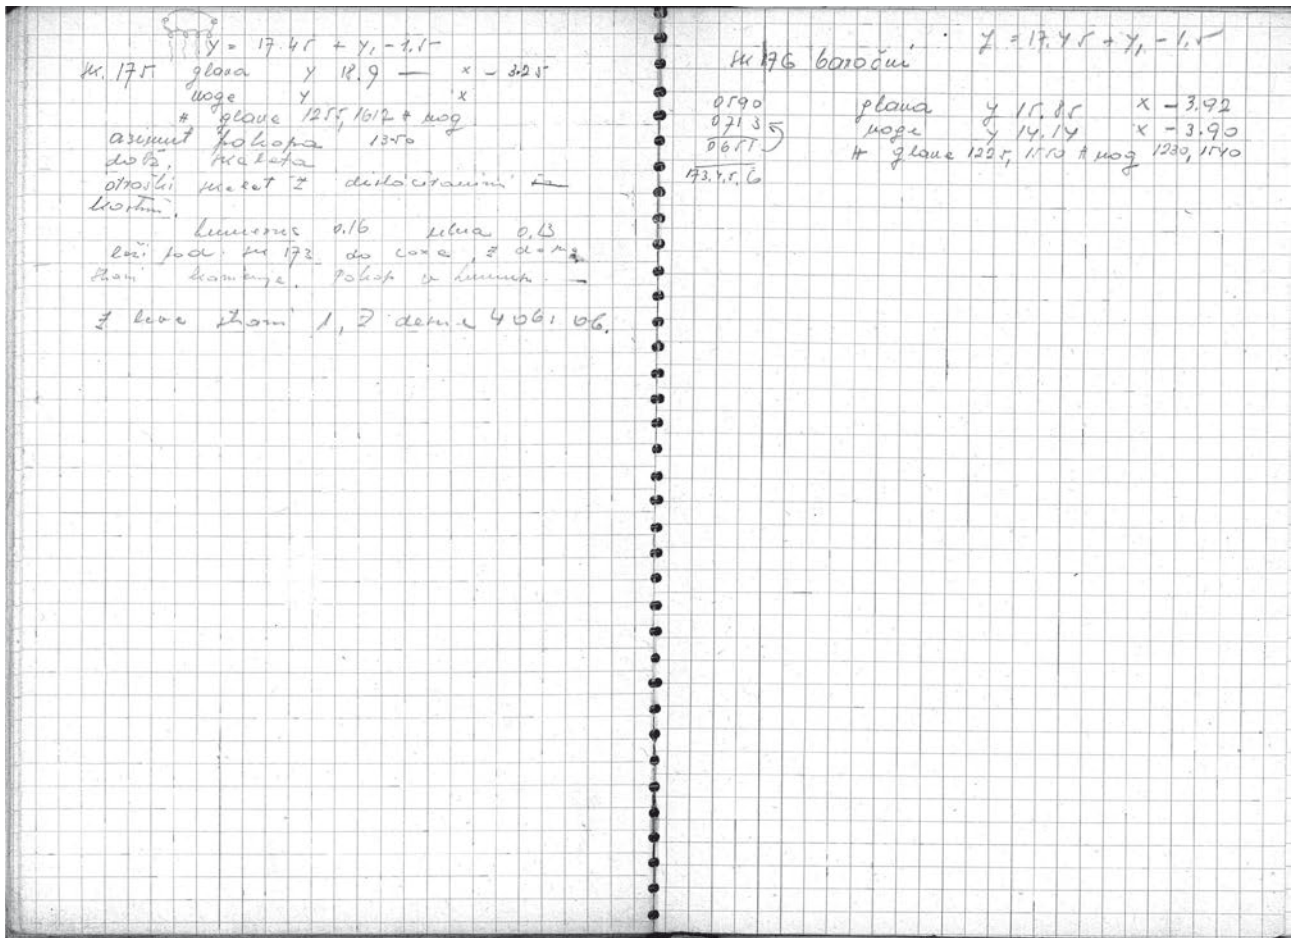 y = 17.45 + y₁ - 1.5
sk. 175 glava y 18.9 — x - 3.25
noge y x
# glave 1255, 1612 # nog
azimut pokopa 1350
dolž. skeleta
otroški skelet z dislociranimi
kostmi.
humerus 0.16 ulna 0.13
leži pod sk 173 do coxe, z desne
strani kamenje. Pokop v humusu —
Z leve strani 1, z desne 4
y = 17.45 + y₁ - 1.5
sk 176 baročni
0590 glava y 15.85 x - 3.92
0713 noge y 14.14 x - 3.90
0655 # glave 1225, 1550 # nog 1230, 1540
173.4.5.6